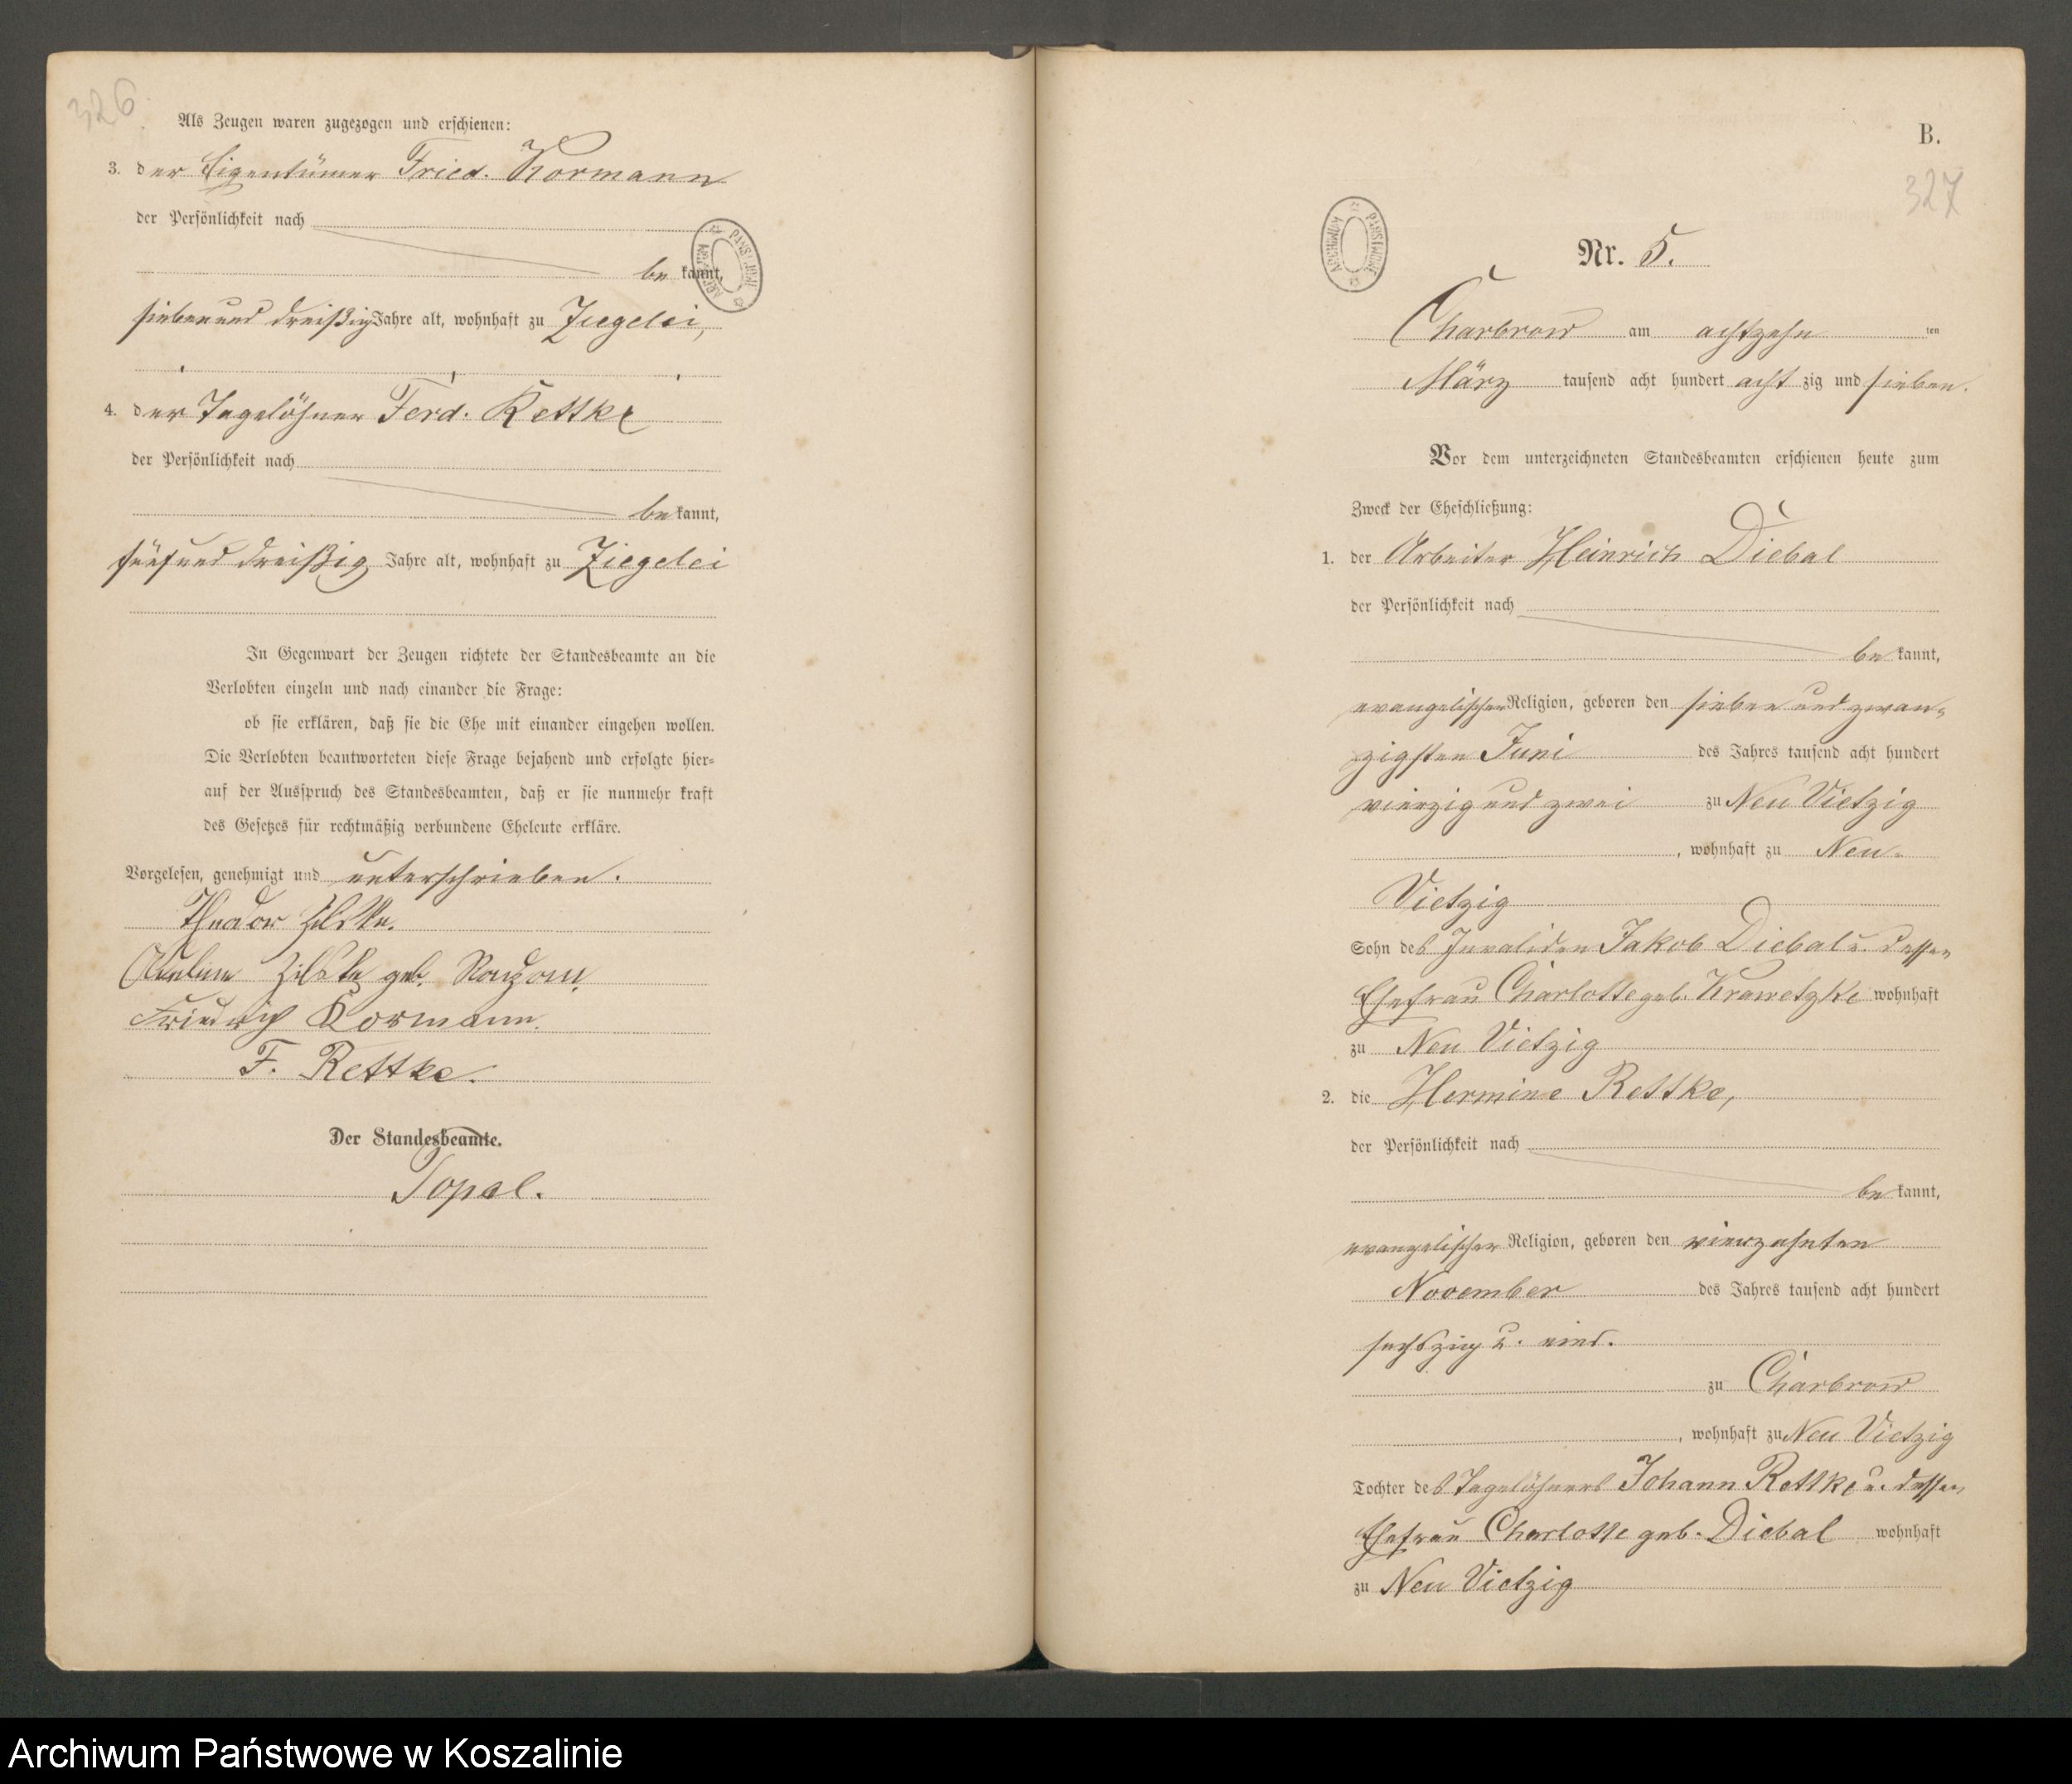 326
Als Zeugen waren zugezogen und erschienen:
3. der Eigentümer Fried. Kormann
der Persönlichkeit nach
be kannt,
siebenund dreißig Jahre alt, wohnhaft zu Ziegelei,
4. der Tagelöhner Ferd. Rettke
der Persönlichkeit nach
be kannt,
fünfund dreißig Jahre alt, wohnhaft zu Ziegelei
In Gegenwart der Zeugen richtete der Standesbeamte an die
Verlobten einzeln und nach einander die Frage:
ob sie erklären, daß sie die Ehe mit einander eingehen wollen.
Die Verlobten beantworteten diese Frage bejahend und erfolgte hier-
auf der Ausspruch des Standesbeamten, daß er sie nunmehr kraft
des Gesetzes für rechtmäßig verbundene Eheleute erkläre.
Vorgelesen, genehmigt und unterschrieben.
Theodor Zilske.
Pauline Zilske geb.
Friedrich Kormann.
F. Rettke.
Der Standesbeamte.
Topel.
B.
327
ARCHIWUM PAŃSTWOWE
Nr. 5.
Charbrow am achtzehn ten
März tausend acht hundert acht zig und sieben.
Vor dem unterzeichneten Standesbeamten erschienen heute zum
Zweck der Eheschließung:
1. der Arbeiter Heinrich Diebal
der Persönlichkeit nach
be kannt,
evangelischer Religion, geboren den sieben und zwan-
zigsten Juni des Jahres tausend acht hundert
vierzig und zwei zu Neu Vietzig
, wohnhaft zu Neu-
Vietzig
Sohn des Invaliden Jakob Diebal u. dessen
Ehefrau Charlotte geb. Krawetzke wohnhaft
zu Neu Vietzig
2. die Hermine Rettke,
der Persönlichkeit nach
be kannt,
evangelischer Religion, geboren den vierzehnten
November des Jahres tausend acht hundert
sechszig u. eins.
zu Charbrow
, wohnhaft zu Neu Vietzig
Tochter des Tagelöhners Johann Rettke u. dessen
Ehefrau Charlotte geb. Diebal wohnhaft
zu Neu Vietzig
Archiwum Państwowe w Koszalinie